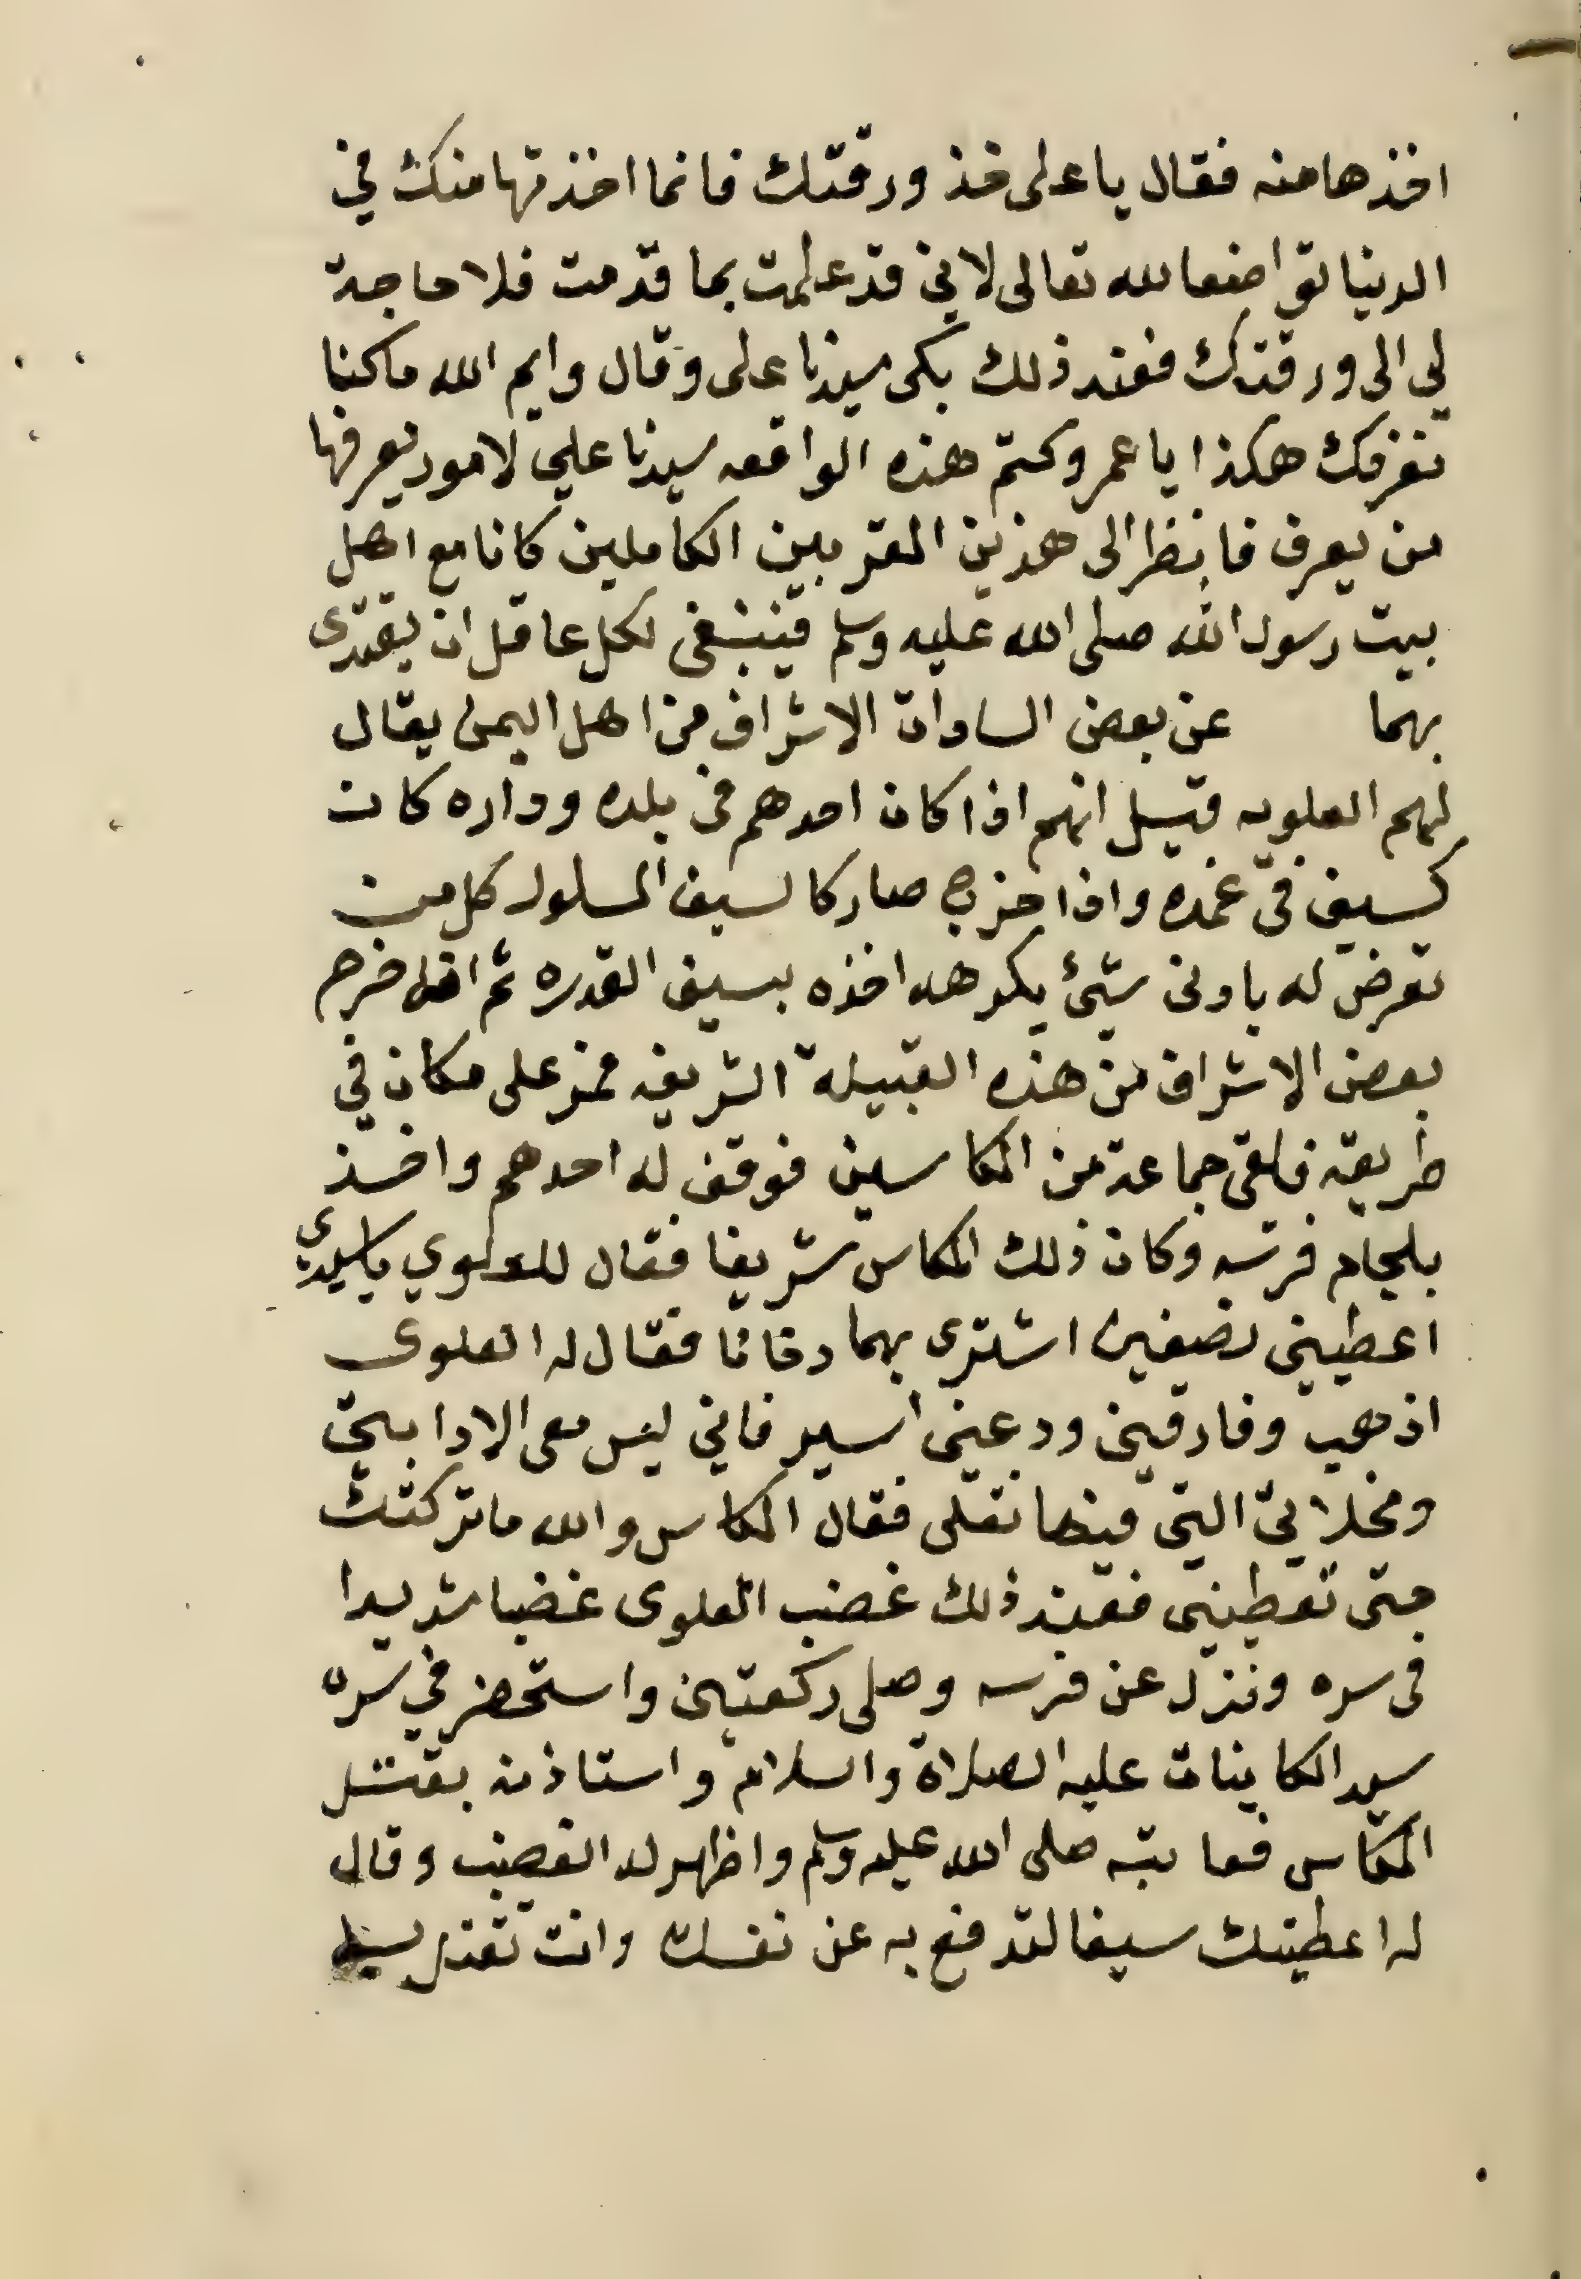 اخذها منه فقال يا على خذ ورقتك فانما اخذتها منك في
الدنيا تواضعا لله تعالى لاني قد علمت بما قدمت فلا حاجة
لي الى ورقتك فعند ذلك بكى سيدنا على وقال وايم الله ما كنا
نعرفك هكذا يا عمر وكتم هذه الواقعه سيدنا علي لامور يعرفها
من يعرف فانظر الى هذين المقربين الكاملين كانا مع اهل
بيت رسول الله صلى الله عليه وسلم فينبغى لكل عاقل ان يقتدى
بهما عن بعض السادات الاشراف من اهل اليمن يقال
لهم العلويه قيل انهم اذا كان احدهم في بلده وداره كان
كسيف في غمده واذا خرج صار كالسيف المسلول كل من
تعرض له بادنى شئ يكرهه اخذه بسيف القدره ثم خرج
بعض الاشراف من هذه القبيلة الشريفه فمر على مكان في
طريقه فلقى جماعة من المكاسين فوقف له احدهم واخذ
بلجام فرسه وكان ذلك المكاس شريفا فقال للعلوي يا سيدي
اعطيني نصفين اشترى بهما دخانا فقال له العلوى
اذهب وفارقني ودعني اسير فاني ليس معى الا دابتي
ومخلاتي التي فيها نقلى فقال المكاس والله ما تركتك
حتى تعطيني فعند ذلك غضب العلوى غضبا شديدا
فى سره ونزل عن فرسه وصلى ركعتين واستحضر في سره
سيد الكاينات عليه الصلاة والسلام واستاذنه بقتل
المكاس فعاتبه صلى الله عليه وسلم واظهر له الغضب وقال
له اعطيتك سيفا لتدفع به عن نفسك وانت تقتل